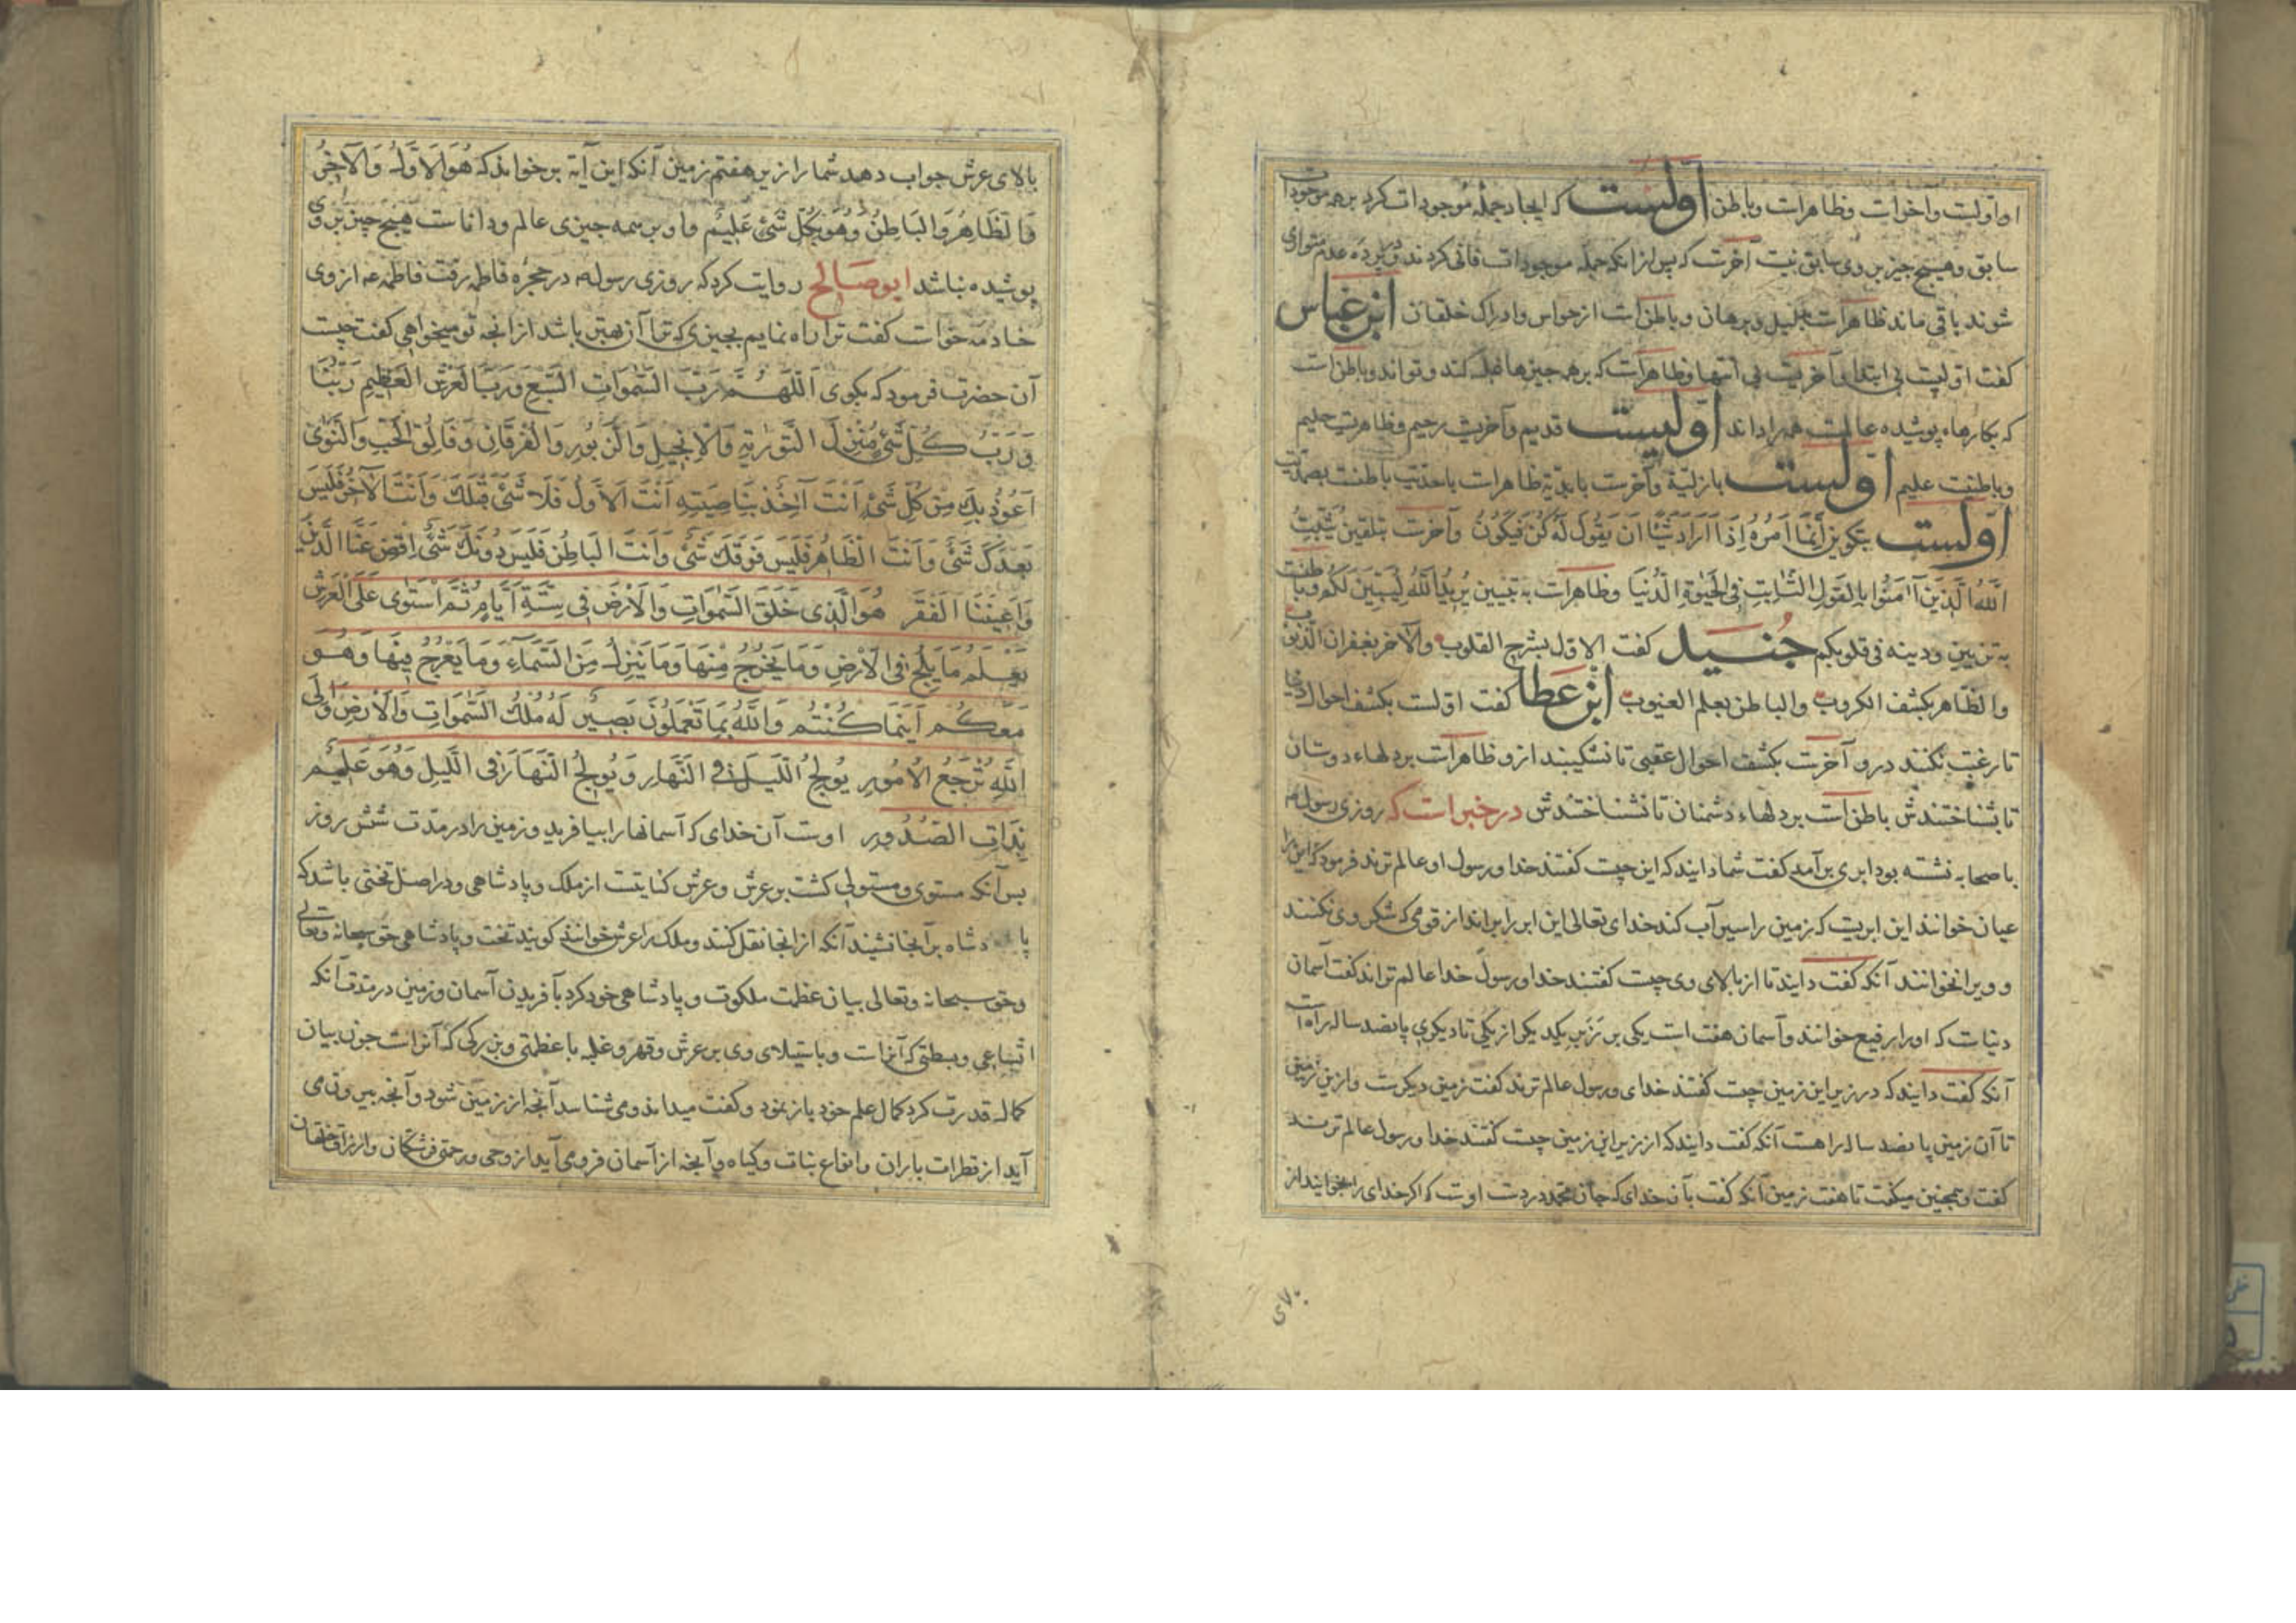 او اولیت و آخرات و ظاهرات و باطن اولیست که ایجاد جمله موجودات کرد بر همه موجودات
سابق و هیچ چیز بر وی سابق نیت آخرت که پس از انکه جمله موجودات فانی کردند و در پرده عدم متواری
شوند باقی ماند ظاهرات بدلیل و برهان و باطن ات از حواس و ادراک خلقان ابن عباس
کفت اولیت بی ابتدا و آخریت بی انتها و ظاهرات که بر همه چیزها غلبه کند و تواند و باطن ات
که بکارهاء پوشیده عالمت همه را داند اولیست قدیم و آخرت رحیم و ظاهرت حلیم
و باطنت علیم اولیست بازلیة و آخرت بابدیة ظاهرات باحدیت باطنت بصمدیت
اولست بتکوین إِنَّمَا اَمْرُهُ اِذَا اَرَادَ شَیْئًا اَنْ یَقُولَ لَهُ کُنْ فَیَکُونُ و آخرت بتلقین یُثَبِّتُ
اللّهُ الَّذِینَ آمَنُوا بِالْقَوْلِ الثَّابِتِ فِی الْحَیٰوةِ الدُّنْیَا و ظاهرات به تبیین یُرِیدُ اللّهُ لِیُبَیِّنَ لَکُمْ و باطنت
به تزیین و زینه فی قلوبکم جُنَید کفت الاول بشرح القلوب والآخر بغفران الذنوب
والظاهر بکشف الکروب والباطن بعلم الغیوب ابن عطا کفت اولست بکشف احوال دنیا
تا رغبت نکنند درو آخرت بکشف احوال عقبی تا نشکیبند ازو ظاهرات بر دلهاء دوستان
تا بشناختندش باطن ات بر دلهاء دشمنان تا نشناختندش در خبر است که روزی رسول م
با صحابه نشته بود ابری بر آمد کفت شما دانید که این چیت کفتند خدا و رسول او عالم ترند فرمود که این را
عیان خوانند این ابریت که زمین را سیراب کند خدای تعالی این ابر را براند از قومی که شکر وی نکنند
و ویرا نخوانند آنکه کفت دانید تا از بالای وی چیت کفتند خدا و رسول خدا عالم تراند کفت آسمان
دنیات که او را رفیع خوانند و آسمان هفت است یکی بر زبر یکدیکر از یکی تا دیکری پانصد ساله راه ات
آنکه کفت دانید که در زیر این زمین چیت کفتند خدای و رسول عالم ترند کفت زمین دیکرت و از ین زمین
تا آن زمین پانصد ساله راهت آنکه کفت دانید که از زیر این زمین چیت کفتند خدا و رسول عالم ترند
کفت و همچنین میکفت تا هفت زمین آنکه کفت بآن خدای که جان محمد در دت اوت که اکر خدای را بخوانید از
بالای عرش جواب دهد شما را از زیر هفتم زمین آنکه این آیة بر خواند که هُوَ الاَوَّلُ وَالآخِرُ
وَالظَّاهِرُ وَالبَاطِنُ وَهُوَ بِکُلِّ شَیْءٍ عَلِیمٌ و او بر همه چیزی عالم و داناست هیچ چیز بر وی
پوشیده نباشد ابوصالح روایت کرد که روزی رسول م در حجره فاطمه رفت فاطمه عه از وی
خادمه خوات کفت ترا راه نمایم بچیزی که ترا آن بهتر باشد از انچه تو میخواهی کفت چیت
آن حضرت فرمود که بکوی اَللّهُمَّ رَبَّ السَّمٰوَاتِ السَّبْعِ وَرَبَّ الْعَرْشِ الْعَظِیمِ رَبَّنَا
وَرَبَّ کُلِّ شَیْءٍ مُنْزِلَ التَّوْرٰیةِ وَالْاِنْجِیلِ وَالزَّبُورِ وَالْفُرْقَانِ وَفَالِقَ الْحَبِّ وَالنَّوٰی
اَعُوذُ بِکَ مِنْ کُلِّ شَیْءٍ اَنْتَ آخِذٌ بِنَاصِیَتِهِ اَنْتَ الْاَوَّلُ فَلَا شَیْءَ قَبْلَکَ وَاَنْتَ الْآخِرُ فَلَیْسَ
بَعْدَکَ شَیْءٌ وَاَنْتَ الظَّاهِرُ فَلَیْسَ فَوْقَکَ شَیْءٌ وَاَنْتَ الْبَاطِنُ فَلَیْسَ دُونَکَ شَیْءٌ اِقْضِ عَنَّا الدَّیْنَ
وَاَغْنِنَا الْفَقْرَ هُوَ الَّذِی خَلَقَ السَّمٰوَاتِ وَالْاَرْضَ فِی سِتَّةِ اَیَّامٍ ثُمَّ اسْتَوٰی عَلَی الْعَرْشِ
یَعْلَمُ مَا یَلِجُ فِی الْاَرْضِ وَمَا یَخْرُجُ مِنْهَا وَمَا یَنْزِلُ مِنَ السَّمَاءِ وَمَا یَعْرُجُ فِیهَا وَهُوَ
مَعَکُمْ اَیْنَمَا کُنْتُمْ وَاللّهُ بِمَا تَعْمَلُونَ بَصِیرٌ لَهُ مُلْکُ السَّمٰوَاتِ وَالْاَرْضِ وَاِلَی
اللّهِ تُرْجَعُ الْاُمُورِ یُولِجُ اللَّیْلَ فِی النَّهَارِ وَیُولِجُ النَّهَارَ فِی اللَّیْلِ وَهُوَ عَلِیمٌ
بِذَاتِ الصُّدُورِ اوت آن خدای که آسمانها را بیافرید و زمین را در مدت شش روز
پس آنکه مستوی و مستولی کشت بر عرش و عرش کنایتت از ملک و پادشاهی و در اصل تختی باشد که
پادشاه بر آنجا نشیند آنکه از انجا نقل کنند و ملک را عرش خوانند کویند تخت و پادشاهی حق سبحانه وتعالی
و حق سبحانه وتعالی بیان عظمت ملکوت و پادشاهی خود کرد بآفریدن آسمان و زمین در مدت آنکه
اتساعی و بسطتی که آنرات و باستیلای وی بر عرش و قهر و غلبه با عظمتی و بزرکی که آنراست چون بیان
کمال قدرت کرد کمال علم خود باز نمود و کفت میداند و می شناسد آنچه از زمین شود و آنچه بیرون می
آید از قطرات باران و انواع بنات و کیاه و آنچه از آسمان فرو می آید از وحی و رحمتی فرشتکان و ارزاق خلقان